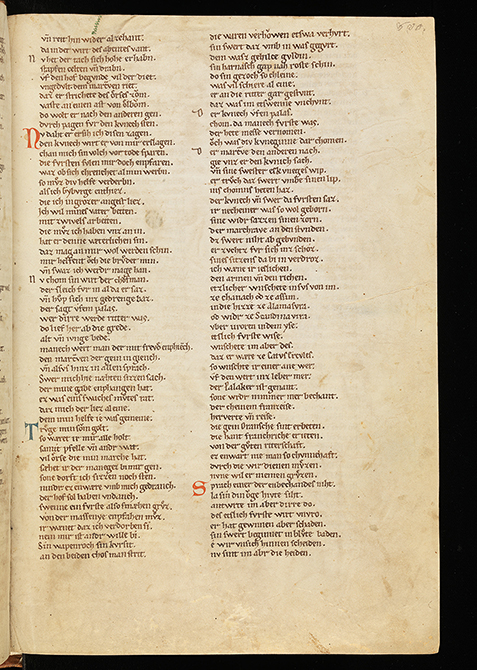 vñ reit hin wider al zehant.
da in der wirt des abents vant.
N v het der tach sich hohe erhabn.
scapfen celten vñ drabn.
vf den hof begunde vil der diet.
daz er strichete des orses zom.
vaste an einen ast von
do wolt er nach den anderen gen.
durch pagen fur den kunech sten.
N v dalzet erfuh ich disen zagen.
den kunech wirt er von mir erslagen.
chan mich sin volch vor tode sparen.
die fursten sulen mir doch enpfaren.
waz ob sich ehteneher al min werbn.
so mvz div helfe verderbn.
als ich Gyburge enthiez.
die ich in grozer angest liez.
Ich wil mines vater beiten.
mit zwivels arbeiten.
die mvz ich haben vnz an in.
hat er denne vaterlichen sin.
daz mag an mir wol werden schin.
mir helfent och die bruder min.
vñ swaz ich werder mage han.
N v chom sin wirt der chofman.
der sleich fur in al da er saz.
vñ hvp sich inz gedrenge baz.
der sagt vf em palas.
wer dirre werde ritter was.
do lief her ab die grede.
alt vñ iunge bede.
manech wert man der mit frevd enphiech.
den marcraven der gein in giench.
vñ als hinz in allen sprach.
Swer mich hie nahten sizzen sach.
der mine gabe enphangen hat.
ez was eins swiches mvtes rat.
daz mich der liez al eine.
dem min helfe ie was gemeine.
T rvge mich son golt.
so waret ir mir alle holt.
samit pfelle vñ ander wat.
vil orse die min marche hat.
sehet ir der maneges bi mir gen.
sone dorft ich sizzen noch sten.
minder ez en ware vmb mich gedranch.
der hof sol haben undanch.
swenne ein furste also smæhen gruz.
von der massenie enpfahen mvz.
ir wanet daz ich verdorben si.
nein mir ist ander wille bi.
Sin wapenroch sin kvrsit.
an den beiden chos man strit.
die waren verhowen etswa verhvrt.
sin swert daz vmb in was gegvrt.
dem was gehilce guldin.
sin harnasch gap nah roste schin.
do sin geroch so chleine.
was vil schiere al eine.
er an die ritter gar gestvnt.
daz was im etswenne vnchvnt.
D er kvnech vf en palas.
chom. da manech furste was.
der hete messe vernomen.
och was div kvneginne dar chomen.
D er marcve den anderen nach.
gie vnz er den kvnich sach.
vñ sine swester ez kvneges wip.
er truch daz swert vmbe sinen lip.
ins chomins heten haz.
der kvnech vñ swer da fursten saz.
ir necheiner was so wol geborn.
sine widr sazzen sinen zorn.
der marchrave an den stvnden.
dz swert niht ab gebvnden.
er zvchetz fur sich inz schoz.
sines sitzens da bi in verdroz.
ich wane ir iesslichen.
den armen vñ den richen.
etzlicher wnschete in svs von im.
ze chanach od ze assim.
in die hizze ze alamasvra.
od widr ze Scandinavia.
vber vroren in dem yse.
etslich furste wise.
wnschete im aber des.
daz er wære ze catvs ercvles.
so wnschte ir einer ane wer.
vf den wirt inz leber mer.
der Palaker ist genant.
sone wrdr nimmer mer bechant.
der cheinem franzeise.
her verte vñ reise.
die gein spansche sint erbeten.
die hant franchriche ertreten.
von der guten ritterschaft.
er enwart nie man so chvnnehaft.
durch die wir dienen mvzzen.
nvne wil er niemen grvzen.
S prach einer der endehandel niht.
la sin dvn vge hvte siht.
antwrte im aber dirre do.
des etslich furste wirt vnvro.
er hat gewinnen aber schaden.
sin swert beginnet in blvte baden.
e wir vnsich hinnen scheiden.
nv sint im abr die heiden.